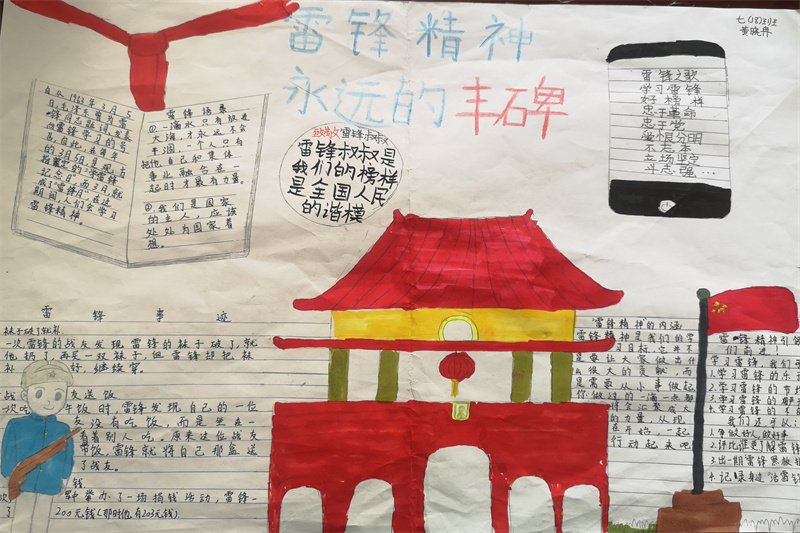 雷锋精神
永远的丰碑
七(18)班
黄晓冉
自从1963年3月5
日,毛泽东曾为雷
锋同志题词,发表
雷锋语录
①一滴水只有放进
大海,才永远不会
干涸,一个人只有
把他自己和集体
事业融合在一
起时才最有力量。
②我们是国家
的主人,应该
处处为国家着
想。
致敬雷锋叔叔
雷锋叔叔是
我们的榜样
是全国人民
的谐模
雷锋之歌
学习雷锋
好榜样
忠于革命
忠于党
爱恨分明
不忘本
立场坚定
斗志强...
雷锋事迹
袜子破了就补
一次雷锋的战友发现雷锋的袜子破了,就
他扔了,再买一双袜子,但雷锋却把袜
补 好,继续穿。
战 友送饭
一次吃 午饭时,雷锋发现自己的一位
友没有吃饭,而是坐在一
看着别人吃。原来这位战友
带饭,雷锋就将自己那盒送
了战友。
钱
举办了一场捐钱活动,雷锋一
了 200元钱(那时他有203元钱)
"雷锋精神"的内涵
雷锋精神是我们的学
习目标,它并不
是要让大家做出什
么很大的贡献,而
是需要从小事做起
你做过的一滴一点
的力量,从现
在开始,一起
行动起来吧
雷锋精神引领
们前进!
学习雷锋,我们要
1.学习雷锋的
2.学习雷锋的
3.学习雷锋的
4.学习雷锋的
我们还可以:
1.争做好人,做好事
2.评比谁更了解雷锋
3.出一期雷锋黑板报
4.记录身边"活雷锋"